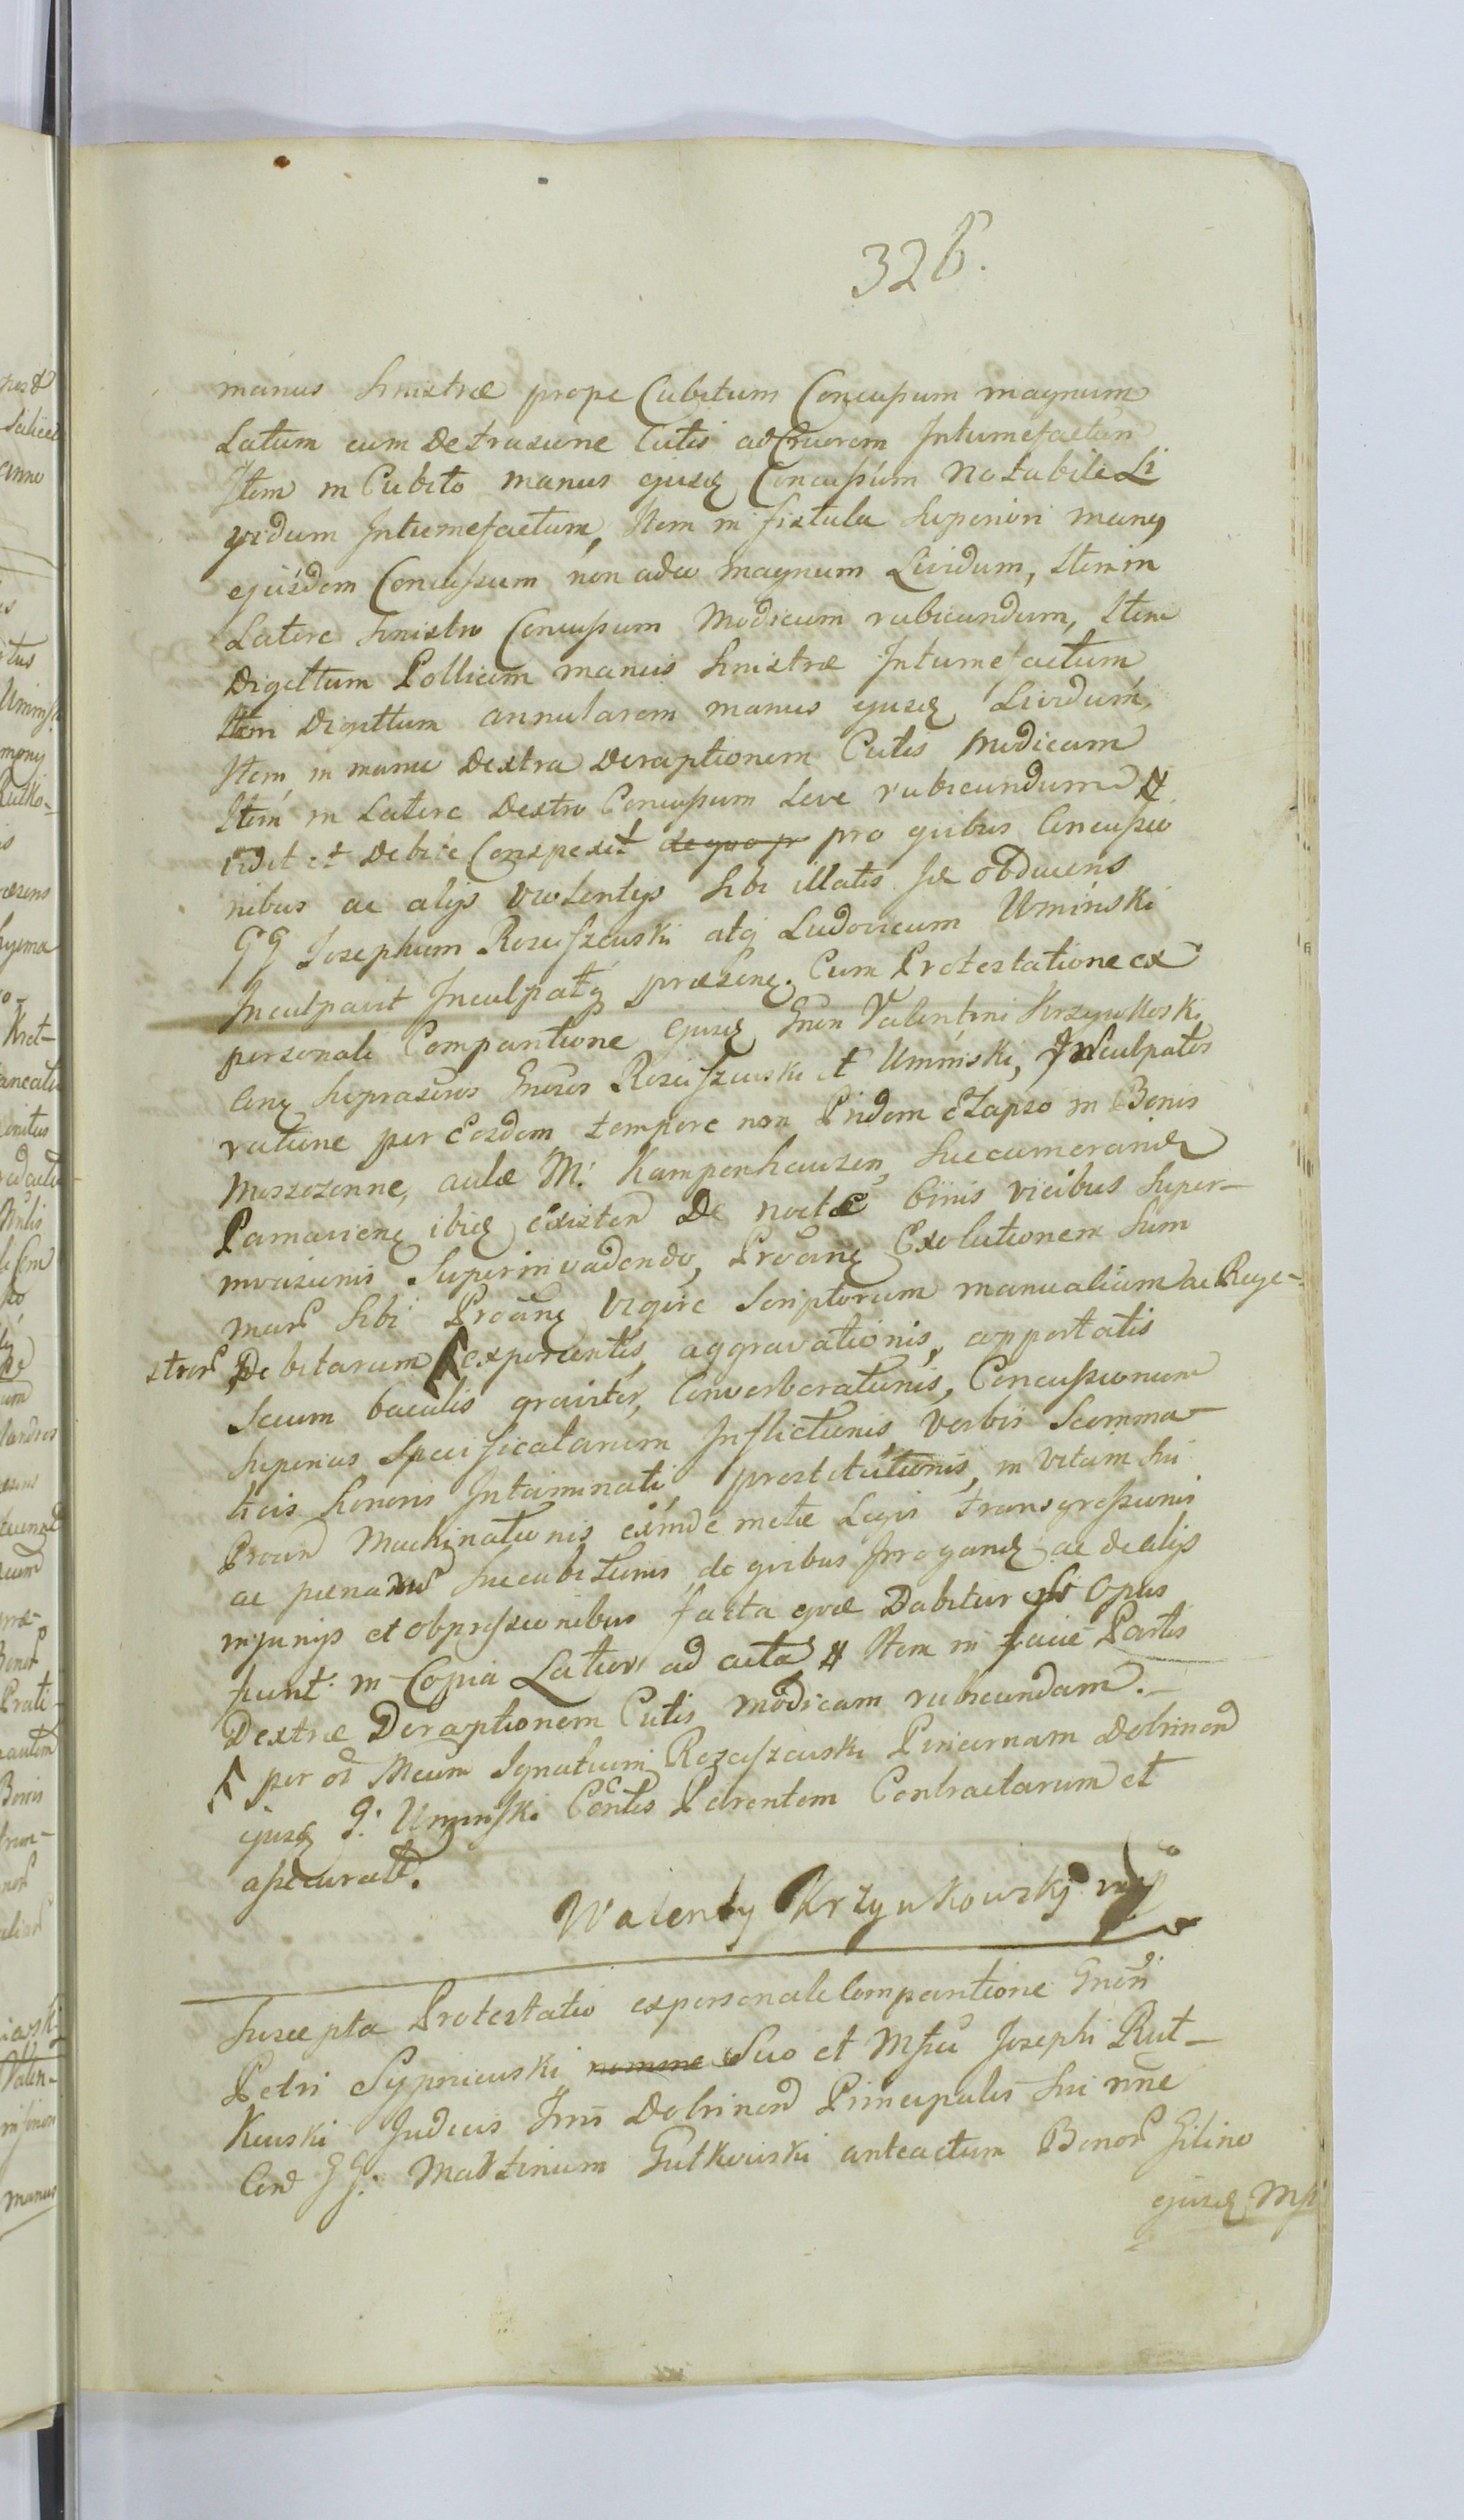 326.
manus sinistræ prope Cubitum Concussum magnum
Latum cum Detrasione Cutis ad Cruorem Intumefactum
Item in Cubito manus ejusd Concussum Notabile Li
vidum Intumefactum, Item in fistula superiori manus
ejusdem Concussum non adeo magnum Lividum, Item in
Latere sinistro Concussum Modicum rubicundum, Item
Digittum Pollicem manus sinistræ Intumefactum
Item Digittum annularem manus ejusd Lividum,
Item in manu Dextra Deraptionem Cutis Modicam
Item in Latere Dextro Concussum Leve rubicundum #
vidit et Debite Conspexit de quo pr pro quibus Concussio
nibus ac alijs violentijs sibi illatis se obducens
GG Josephum Roscissewski atq Ludovicum Uminski
Inculpavit Inculpatq præsen. Cum Protestatione ex
personali Comparitione ejusd Gnen Valentini Krzywkoski
Con supraser Gneros Rosciszewski et Uminski, Inculpatos
ratione per Eosdem tempore non Pridem Elapso in Bonis
Moszczonne, aulæ M. Kampenhauzen, Succamerarid
Parnavien ibid existen De nocte binis vicibus super-
invasionis Superinvadendo, Proan Exolutionem Sum
mar sibi Proan Vigore Scriptorum manualium ac Rege-
stror Debitarum exporcentis, aggravationis, apportatis
secum baculis graviter, Converberationis, Concussionum
superius Specificatarum Inflictionis verbis Scomma
ticis honoris Intaminati prostitutionis, in vitam sui
Proan Machinationis eximde metæ Legis transgressionis
ac pænarum succubitionis de quibus Irrogand ac de alijs
injurijs et obpressionibus facta quæ Dabitur si Opus
fuerit in Copia Latiori ad acta # Item in facie Partis
Dextræ Deraptionem Cutis modicam rubicundam.
per ol Meum Ignatium Rozciszewski Pincernam Dobrinen
ejusd G. Uminski Contis Parentem Contractarum et
assecurat.
Walenty Krzywkowski mp
Suscepta Protestatio ex personale Comparitione Gneri
Petri Sypniewski nomine Suo et Mfci Josephi Rut-
kowski Judicis Trris Dobrinen Principalis sui nne
Con GG. Martinum Gutkowski anteactum Bonor Gilino
ejusd Mfi